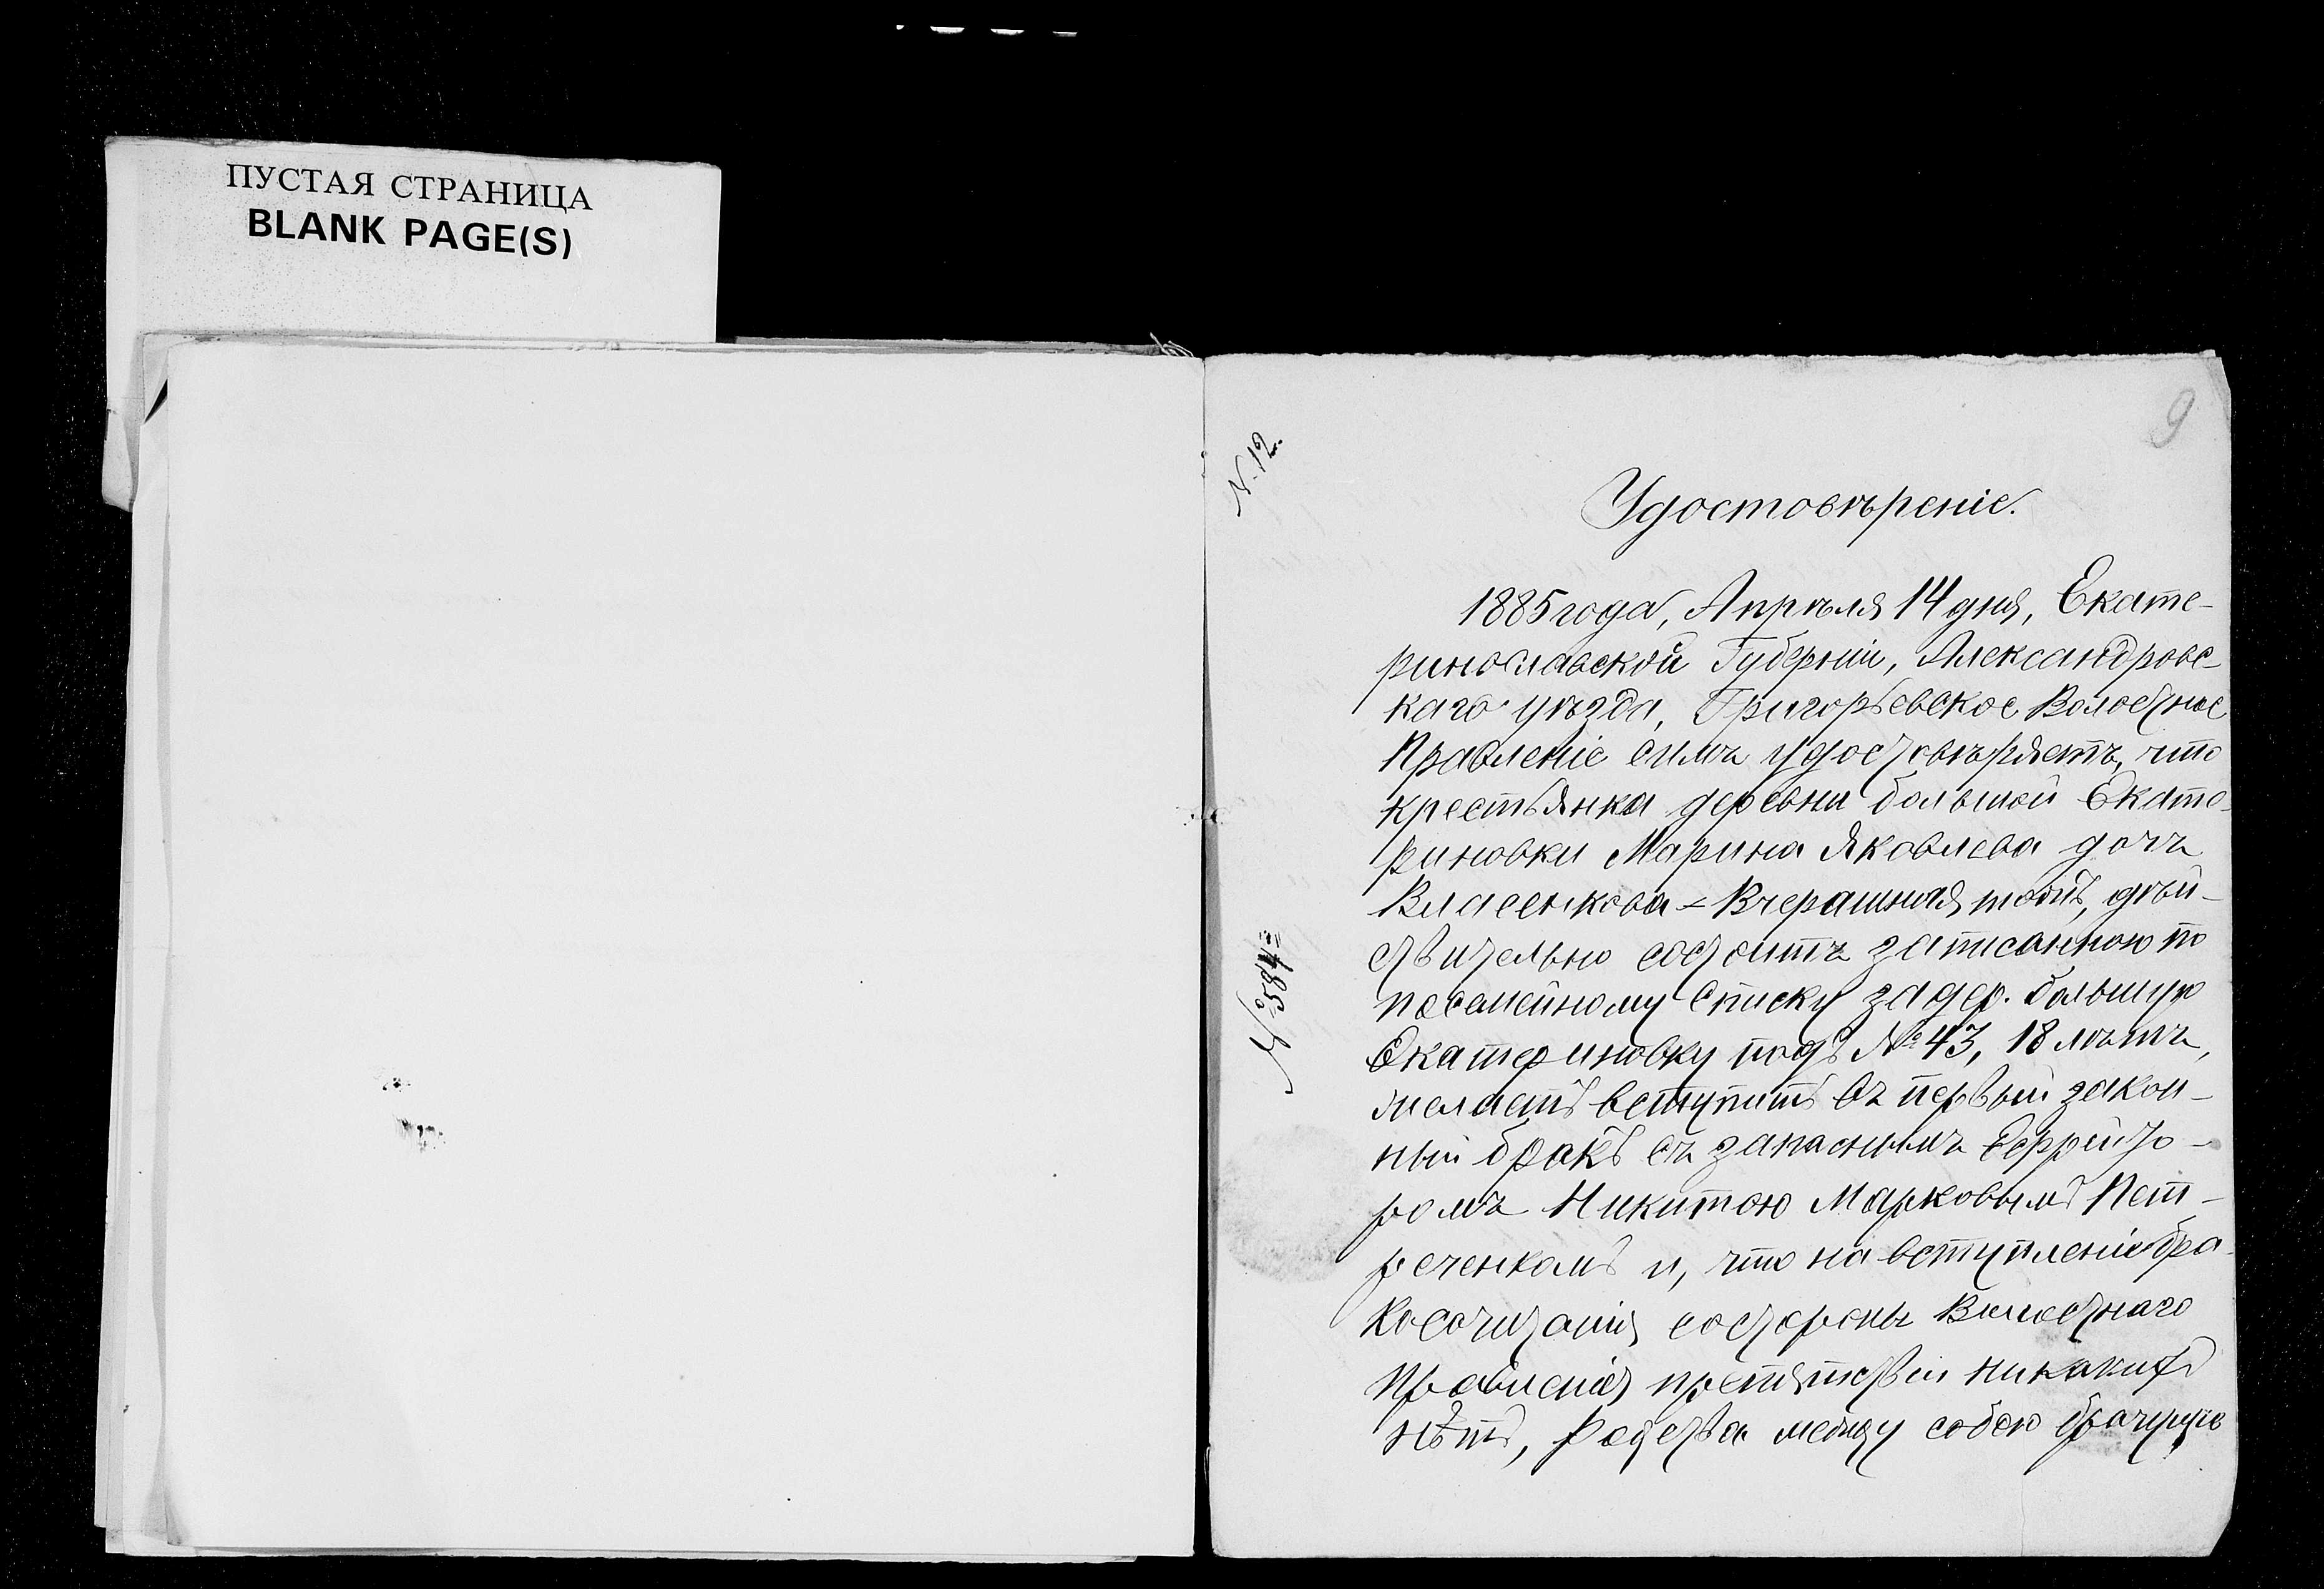 ПУСТАЯ СТРАНИЦА
BLANK PAGE(S)
9
N. 12.
№ 584
Удостовѣреніе.
1885 года, Апрѣля 14 дня, Екате-
ринославской Губерніи, Александровс-
каго уѣзда, Григорьевское Волостное
Правленіе симъ удостовѣряетъ, что
крестьянка деревни большой Екате-
риновки Марина Яковлева дочь
Власенкова-Вчерашняя тожъ, дѣй-
ствительно состоитъ записанною по
посемейному списку за дер. большую
Екатериновку подъ № 43, 18 лѣтъ,
желаетъ вступить въ первый закон-
ный бракъ съ запаснымъ Ефрейто-
ромъ Никитою Марковымъ Пет-
реченкомъ и, что на вступленіе бра-
косочитанія состороны Волостнаго
Правленія препятствій никакихъ
нѣтъ, родства между собою брачущіе